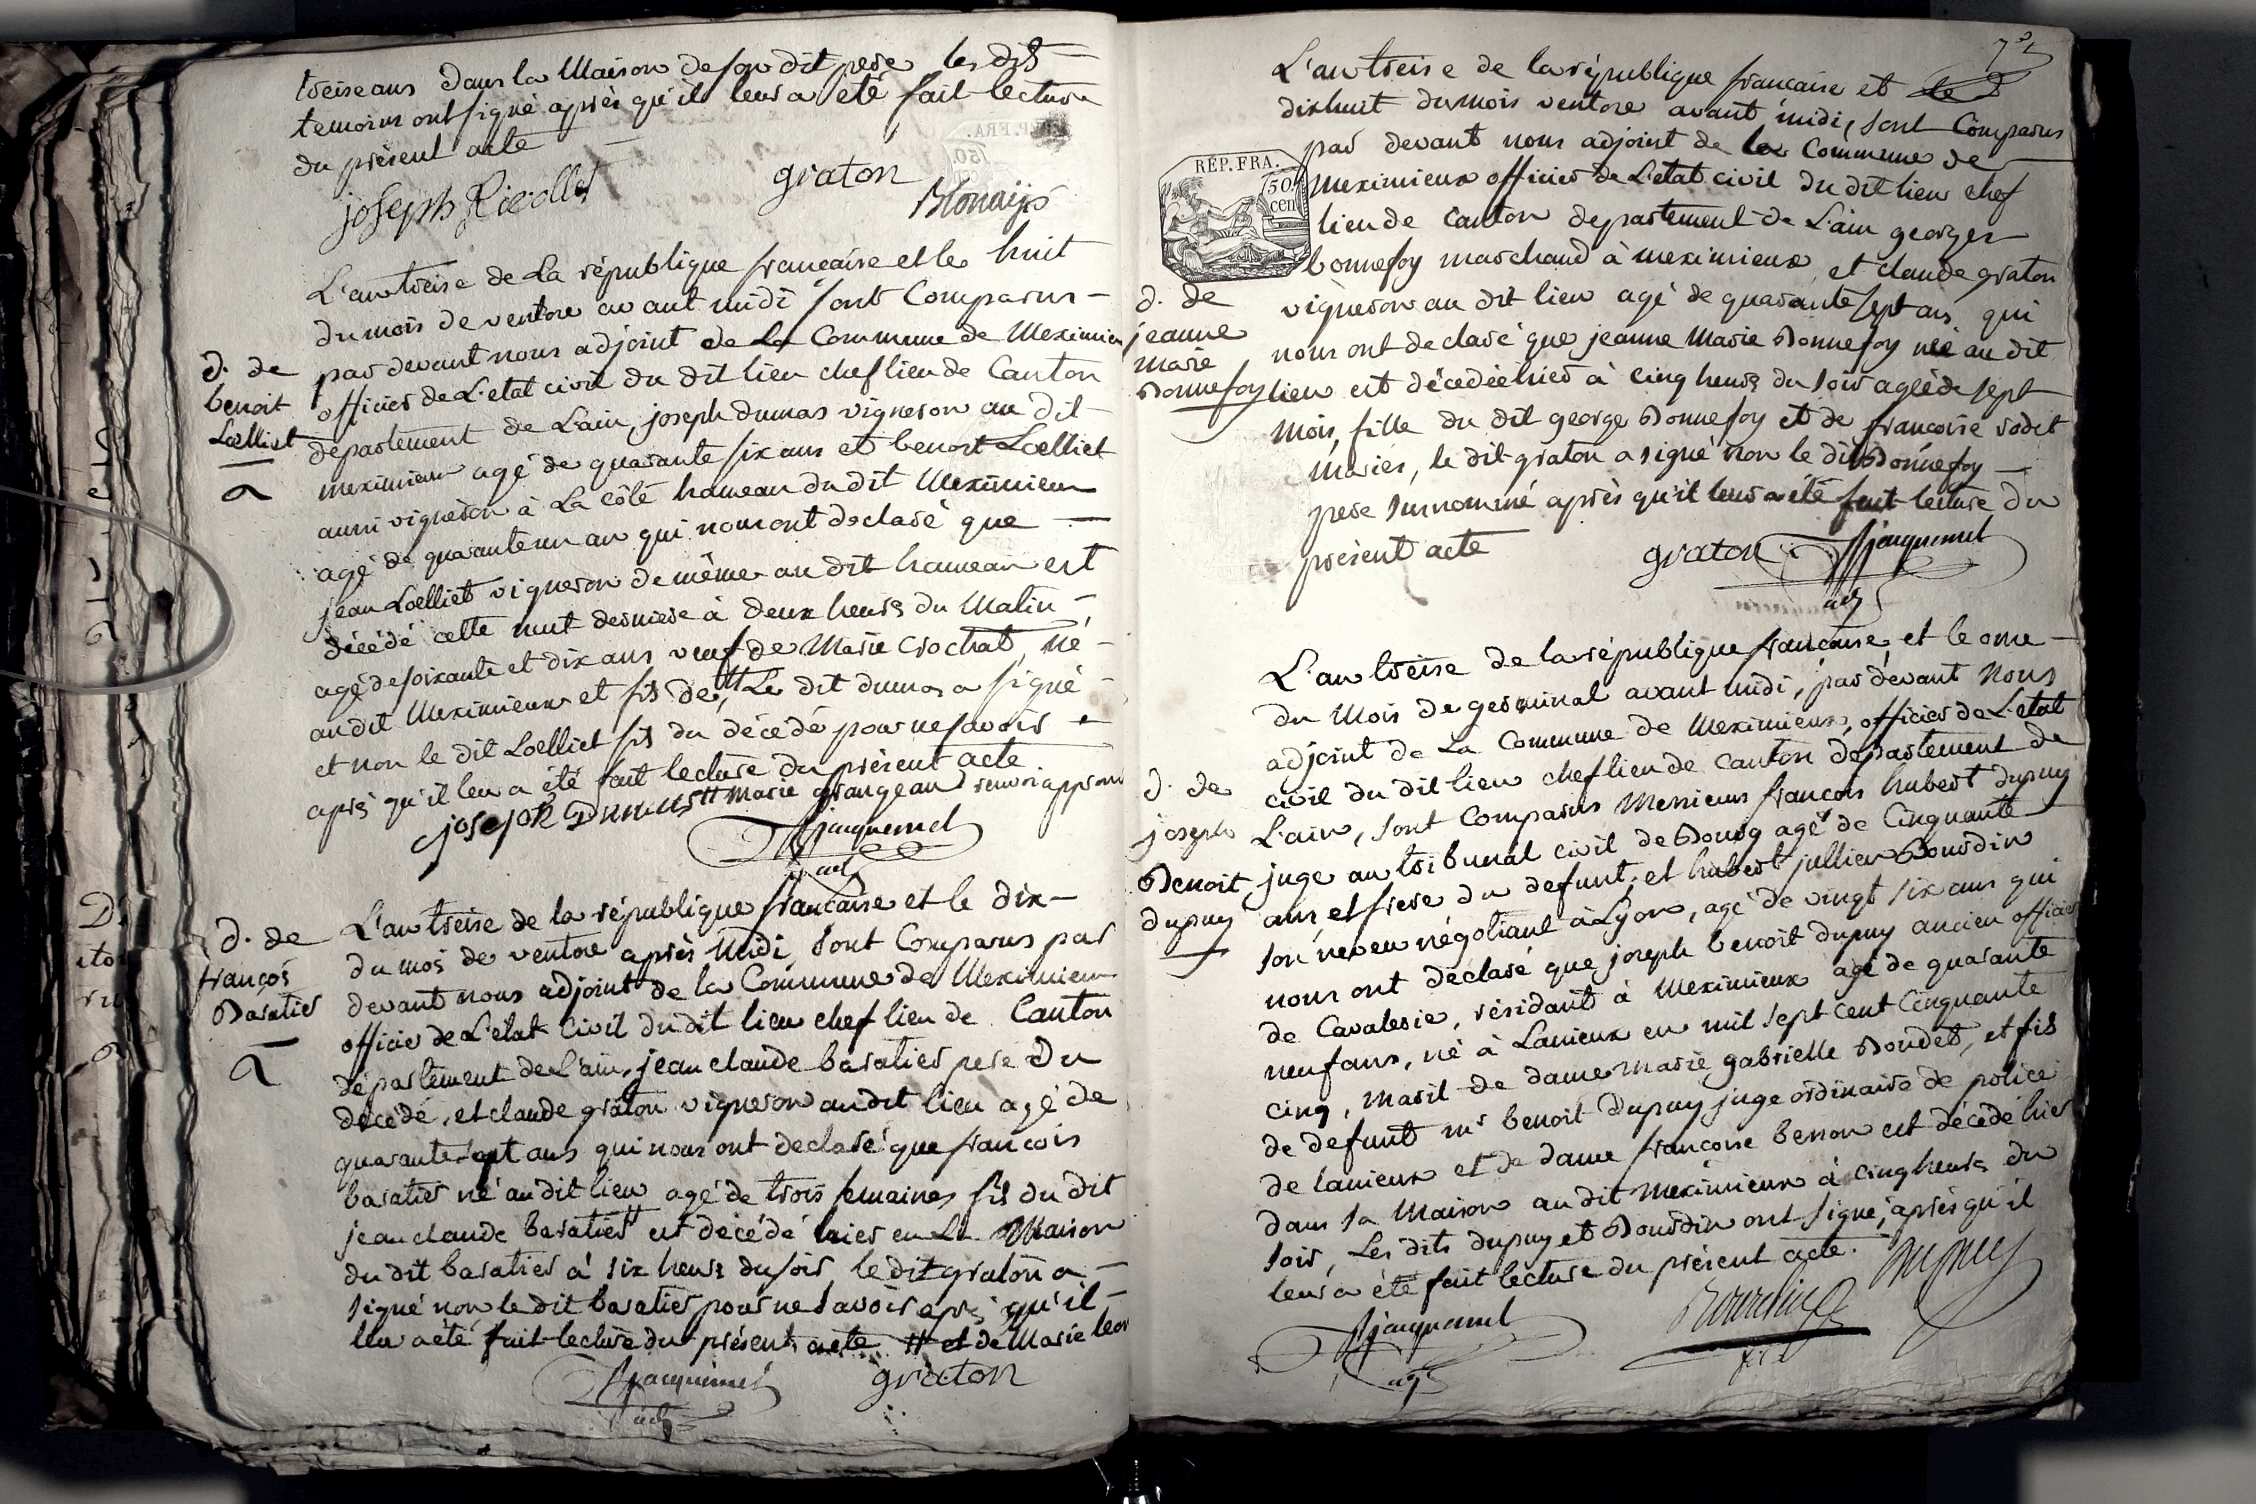 treise ans dans la Maison de son dit pere les dits
temoins ont signé après qu'il leur a été fait lecture
du présent acte
joseph Rivollet graton
L'an treise de La république francaise et le huit
du mois de ventose avant midi sont Comparus
par devant nous adjoint de La Commune de Meximieu
officier de L'etat civil du dit lieu chef lieu de Canton
département de L'ain, joseph dumas vigneron au dit
meximieux agé de quarante six ans et benoit Loelliet
aussi vigneron à La côte hameau du dit Meximieux
agé de quarante un an qui nous ont déclaré que
jean Loelliet vigneron de même au dit hameau est
décédé cette nuit derniere à deux heures du Matin
agé de soixante et dix ans veuf de Marie Crochat, né
au dit Meximieux et fils de, Le dit dumas a signé
et non le dit Loelliet fils du décédé pour ne savoir
après qu'il leur a été fait lecture du présent acte
joseph Dumas marie grangean renvoi approuvé
Jacquemet
adj
d. de
benoit
Loelliet
L'an treise de la république francaise et le dix
du mois de ventose après Midi sont Comparus par
devant nous adjoint de la Commune de Meximieux
officier de L'etat Civil du dit lieu chef lieu de Canton
département de l'ain, jean claude baratier pere du
décédé, et claude graton vigneron au dit lieu agé de
quarante sept ans qui nous ont declaré que francois
baratier né au dit lieu agé de trois semaines fils du dit
jean claude baratier est décédé hier en La Maison
du dit baratier à six heures du soir, le dit graton a
signé non le dit baratier pour ne savoir après qu'il
leur a été fait lecture du présent acte et de Marie
Jacquemet graton
adj
d. de
françois
Baratier
L'an treise de la république francaise et
dixhuit du mois ventose avant midi, sont Comparus
par devant nous adjoint de la Commune de
Meximieux officier de L'etat civil du dit lieu chef
lieu de Canton departement de L'ain georges
bonnefoy marchand à meximieux et claude graton
vigneron au dit lieu agé de quarante sept ans, qui
nous ont declaré que jeanne Marie Bonnefoy née au dit
lieu est décedée hier à cinq heures du soir agée de sept
mois, fille du dit george Bonnefoy et de francoise rodet
mariés, le dit graton a signé non le dit Bonnefoy
pere surnommé après qu'il leur a été fait lecture du
présent acte
graton Jacquemet
adj
RÉP. FRA.
50
cen
d. de
jeanne
marie
Bonnefoy
L'an treise de la république francaise, et le onse
du Mois de germinal avant midi, par devant Nous
adjoint de La Commune de Meximieux, officier de L'etat
civil du dit lieu chef lieu de Canton département de
L'ain, sont Comparus Messieurs francois hubert dupuy
juge au tribunal civil de Bourg agé de Cinquante
ans, et frere du defunt, et hubert jullien Bourdin
son neveu négotiant à Lyon, agé de vingt six ans qui
nous ont déclaré que joseph benoit dupuy ancien officier
de Cavalerie, résidant à Meximieux agé de quarante
neuf ans, né à Lanieux en mil sept cent Cinquante
cinq, marit de dame marie gabrielle Boudet, et fils
de defunt mr benoit Dupuy juge ordinaire de police
de lanieux et de dame francoise besson est décédé hier
dans sa Maison au dit meximieux à cinq heures du
soir, Les dits dupuy et Bourdin ont signé, après qu'il
leur a été fait lecture du présent acte. Dupuy
Jacquemet Bourdin
adj
d. de
joseph
Benoit
dupuy